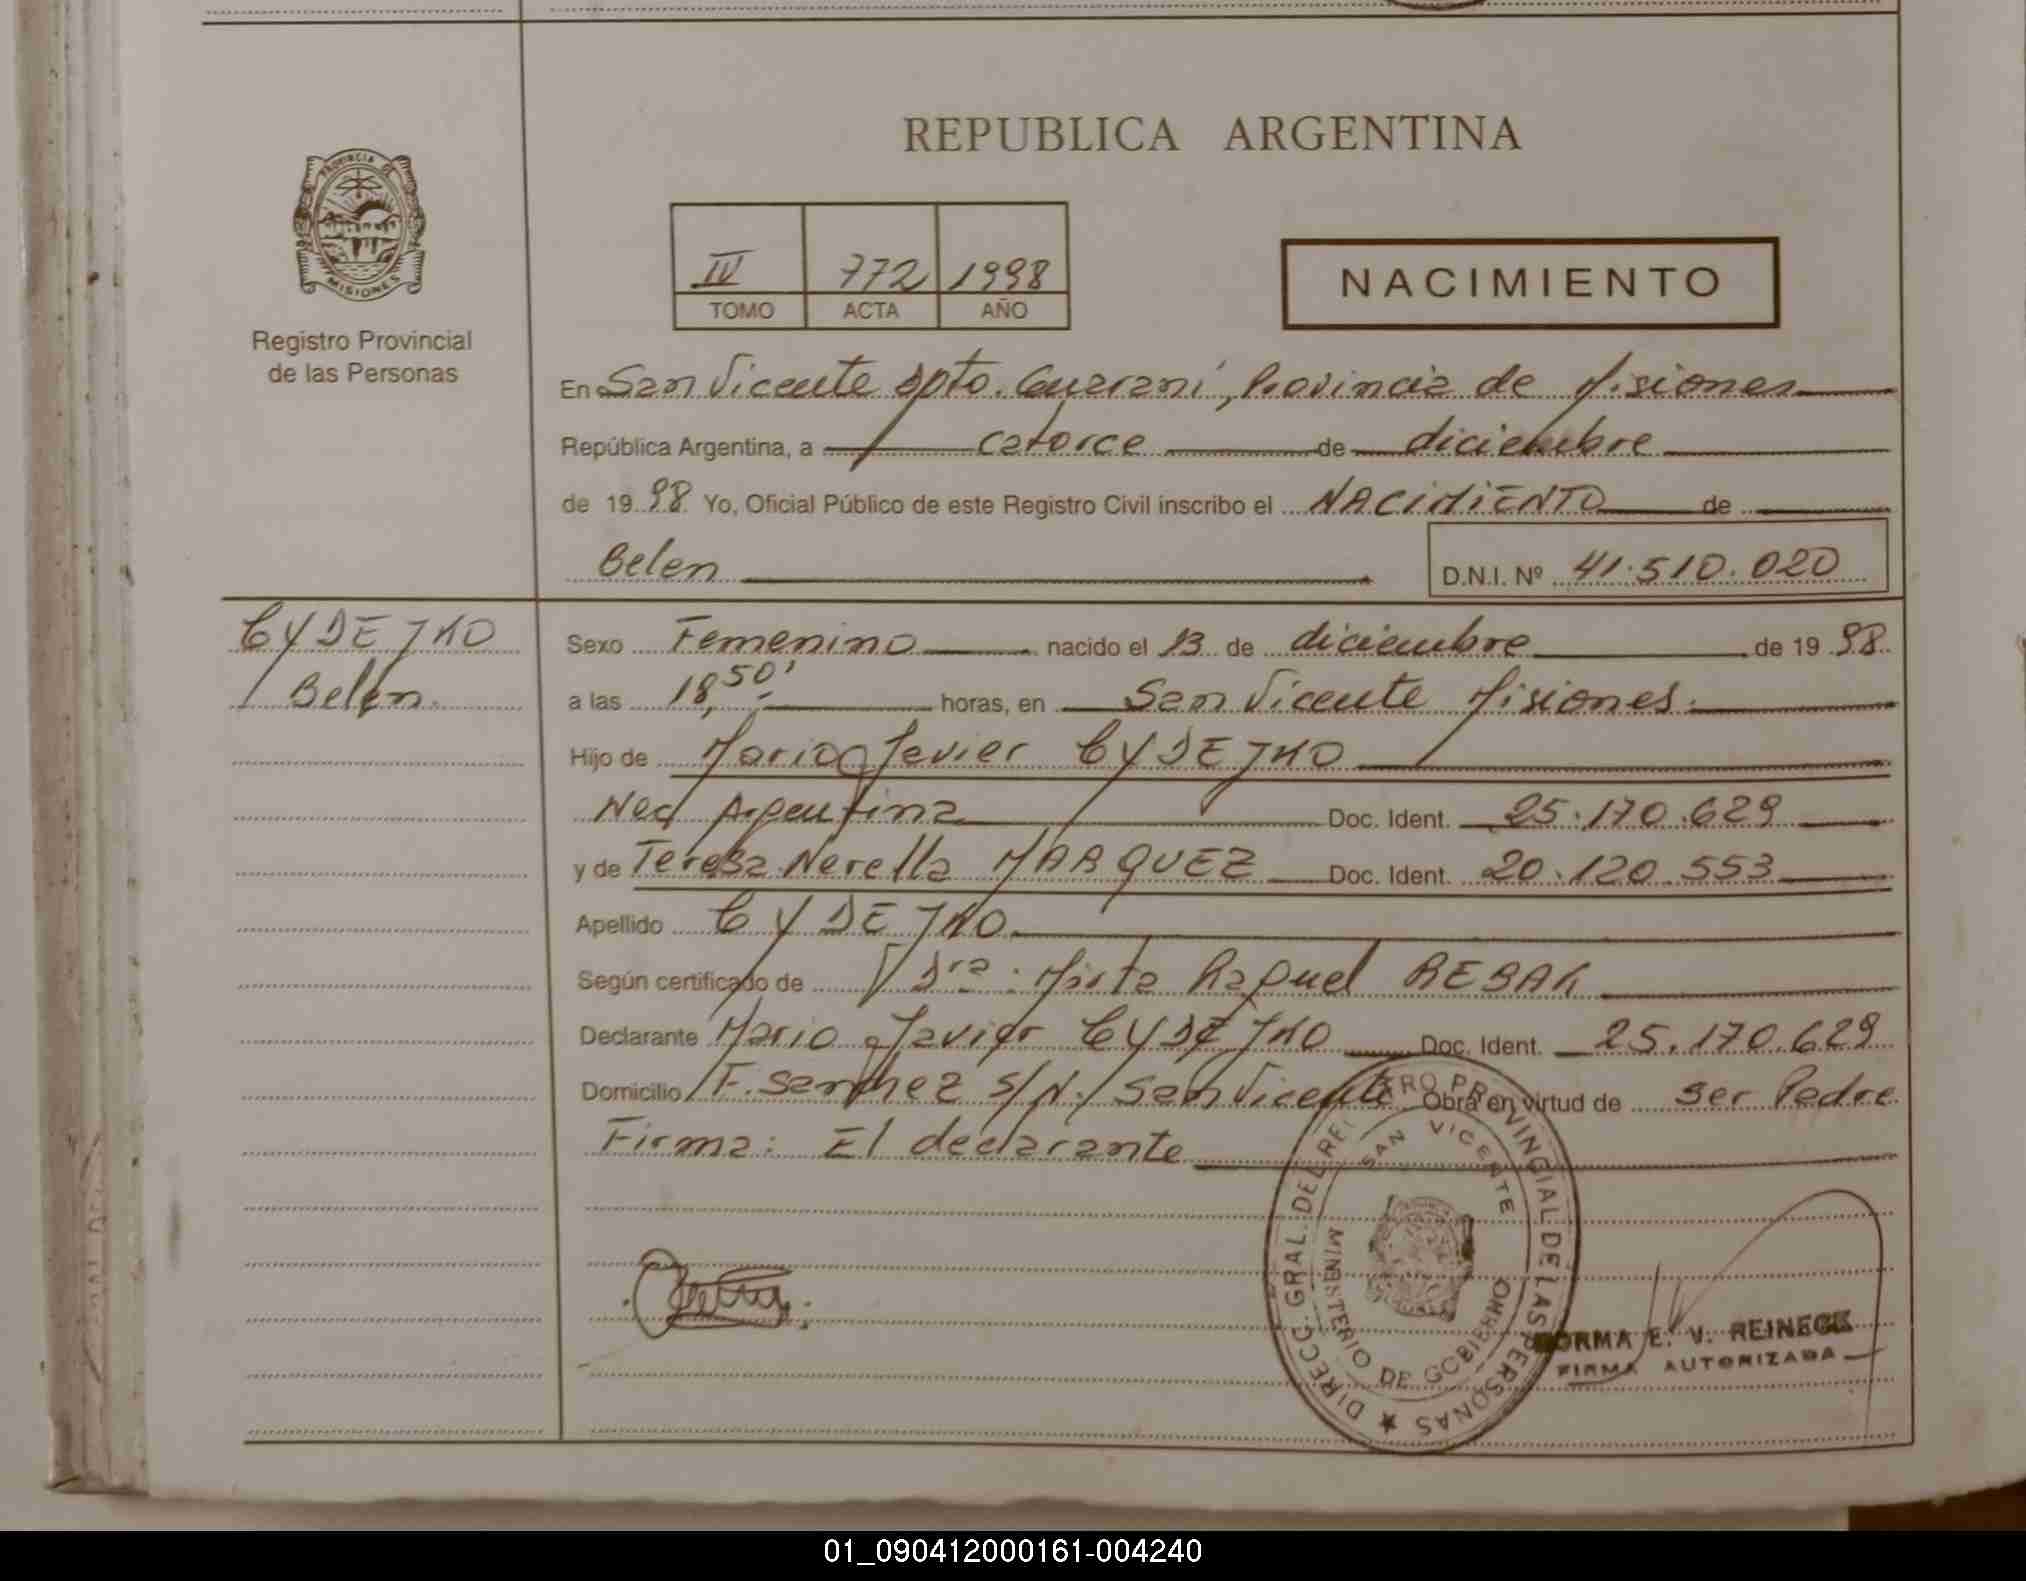 REPUBLICA ARGENTINA
PROVINCIA DE
MISIONES
Registro Provincial
de las Personas
IV 772 1998
TOMO ACTA AÑO
NACIMIENTO
En San Vicente Dpto. Guaraní, Provincia de Misiones
República Argentina, a catorce de diciembre
de 1998 Yo, Oficial Público de este Registro Civil inscribo el NACIMIENTO de
Belen
D.N.I. Nº 41.510.020
CYDEJKO
Belen.
Sexo Femenino nacido el 13 de diciembre de 1998
a las 18,50' horas, en San Vicente Misiones.
Hijo de Mario Javier CYDEJKO
Nac Argentina Doc. Ident. 25.170.629
y de Teresa Nerella MARQUEZ Doc. Ident. 20.120.553
Apellido CYDEJKO
Según certificado de Dra. Mirta Raquel
Declarante Mario Javier CYDEJKO Doc. Ident. 25.170.629
Domicilio F. Sanchez S/N. San Vicente Obra en virtud de Ser Padre
Firma: El declarante
DIRECC. GRAL. DEL REGISTRO PROVINCIAL DE LAS PERSONAS
SAN VICENTE
MINISTERIO DE GOBIERNO
NORMA E. V. REINECK
FIRMA AUTORIZADA
01_090412000161-004240